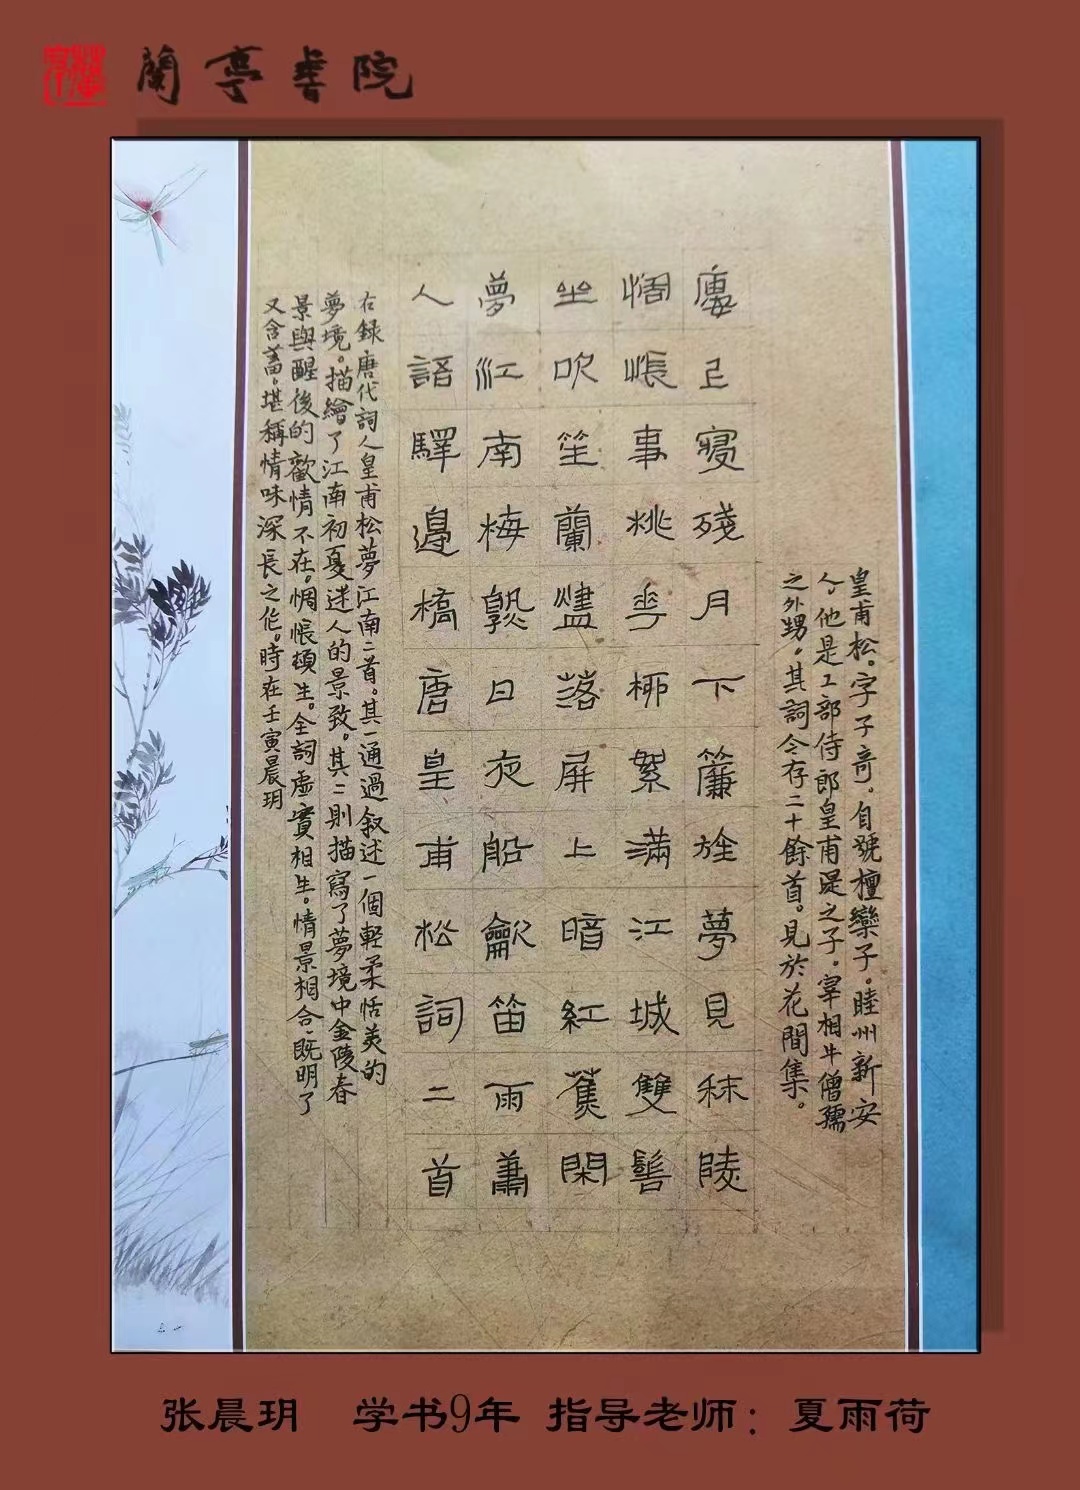 蘭亭書院
皇甫松。字子奇。自號檀欒子。睦州新安
人。他是工部侍郎皇甫湜之子。宰相牛僧孺
之外甥。其詞今存二十餘首。見於花間集。
廔上寢殘月下簾旌夢見秣陵
惆悵事桃花柳絮滿江城雙髻
坐吹笙蘭燼落屏上暗紅蕉閑
夢江南梅熟日夜船龡笛雨蕭
人語驛邊橋唐皇甫松詞二首
右錄唐代詞人皇甫松夢江南二首。其一通過叙述一個輕柔恬美的
夢境。描繪了江南初夏迷人的景致。其二則描寫了夢境中金陵春
景與醒後的歡情不在。惆悵頓生。全詞虛實相生。情景相合。既明了
又含蓄。堪稱情味深長之作。時在壬寅晨玥
张晨玥 学书9年 指导老师：夏雨荷